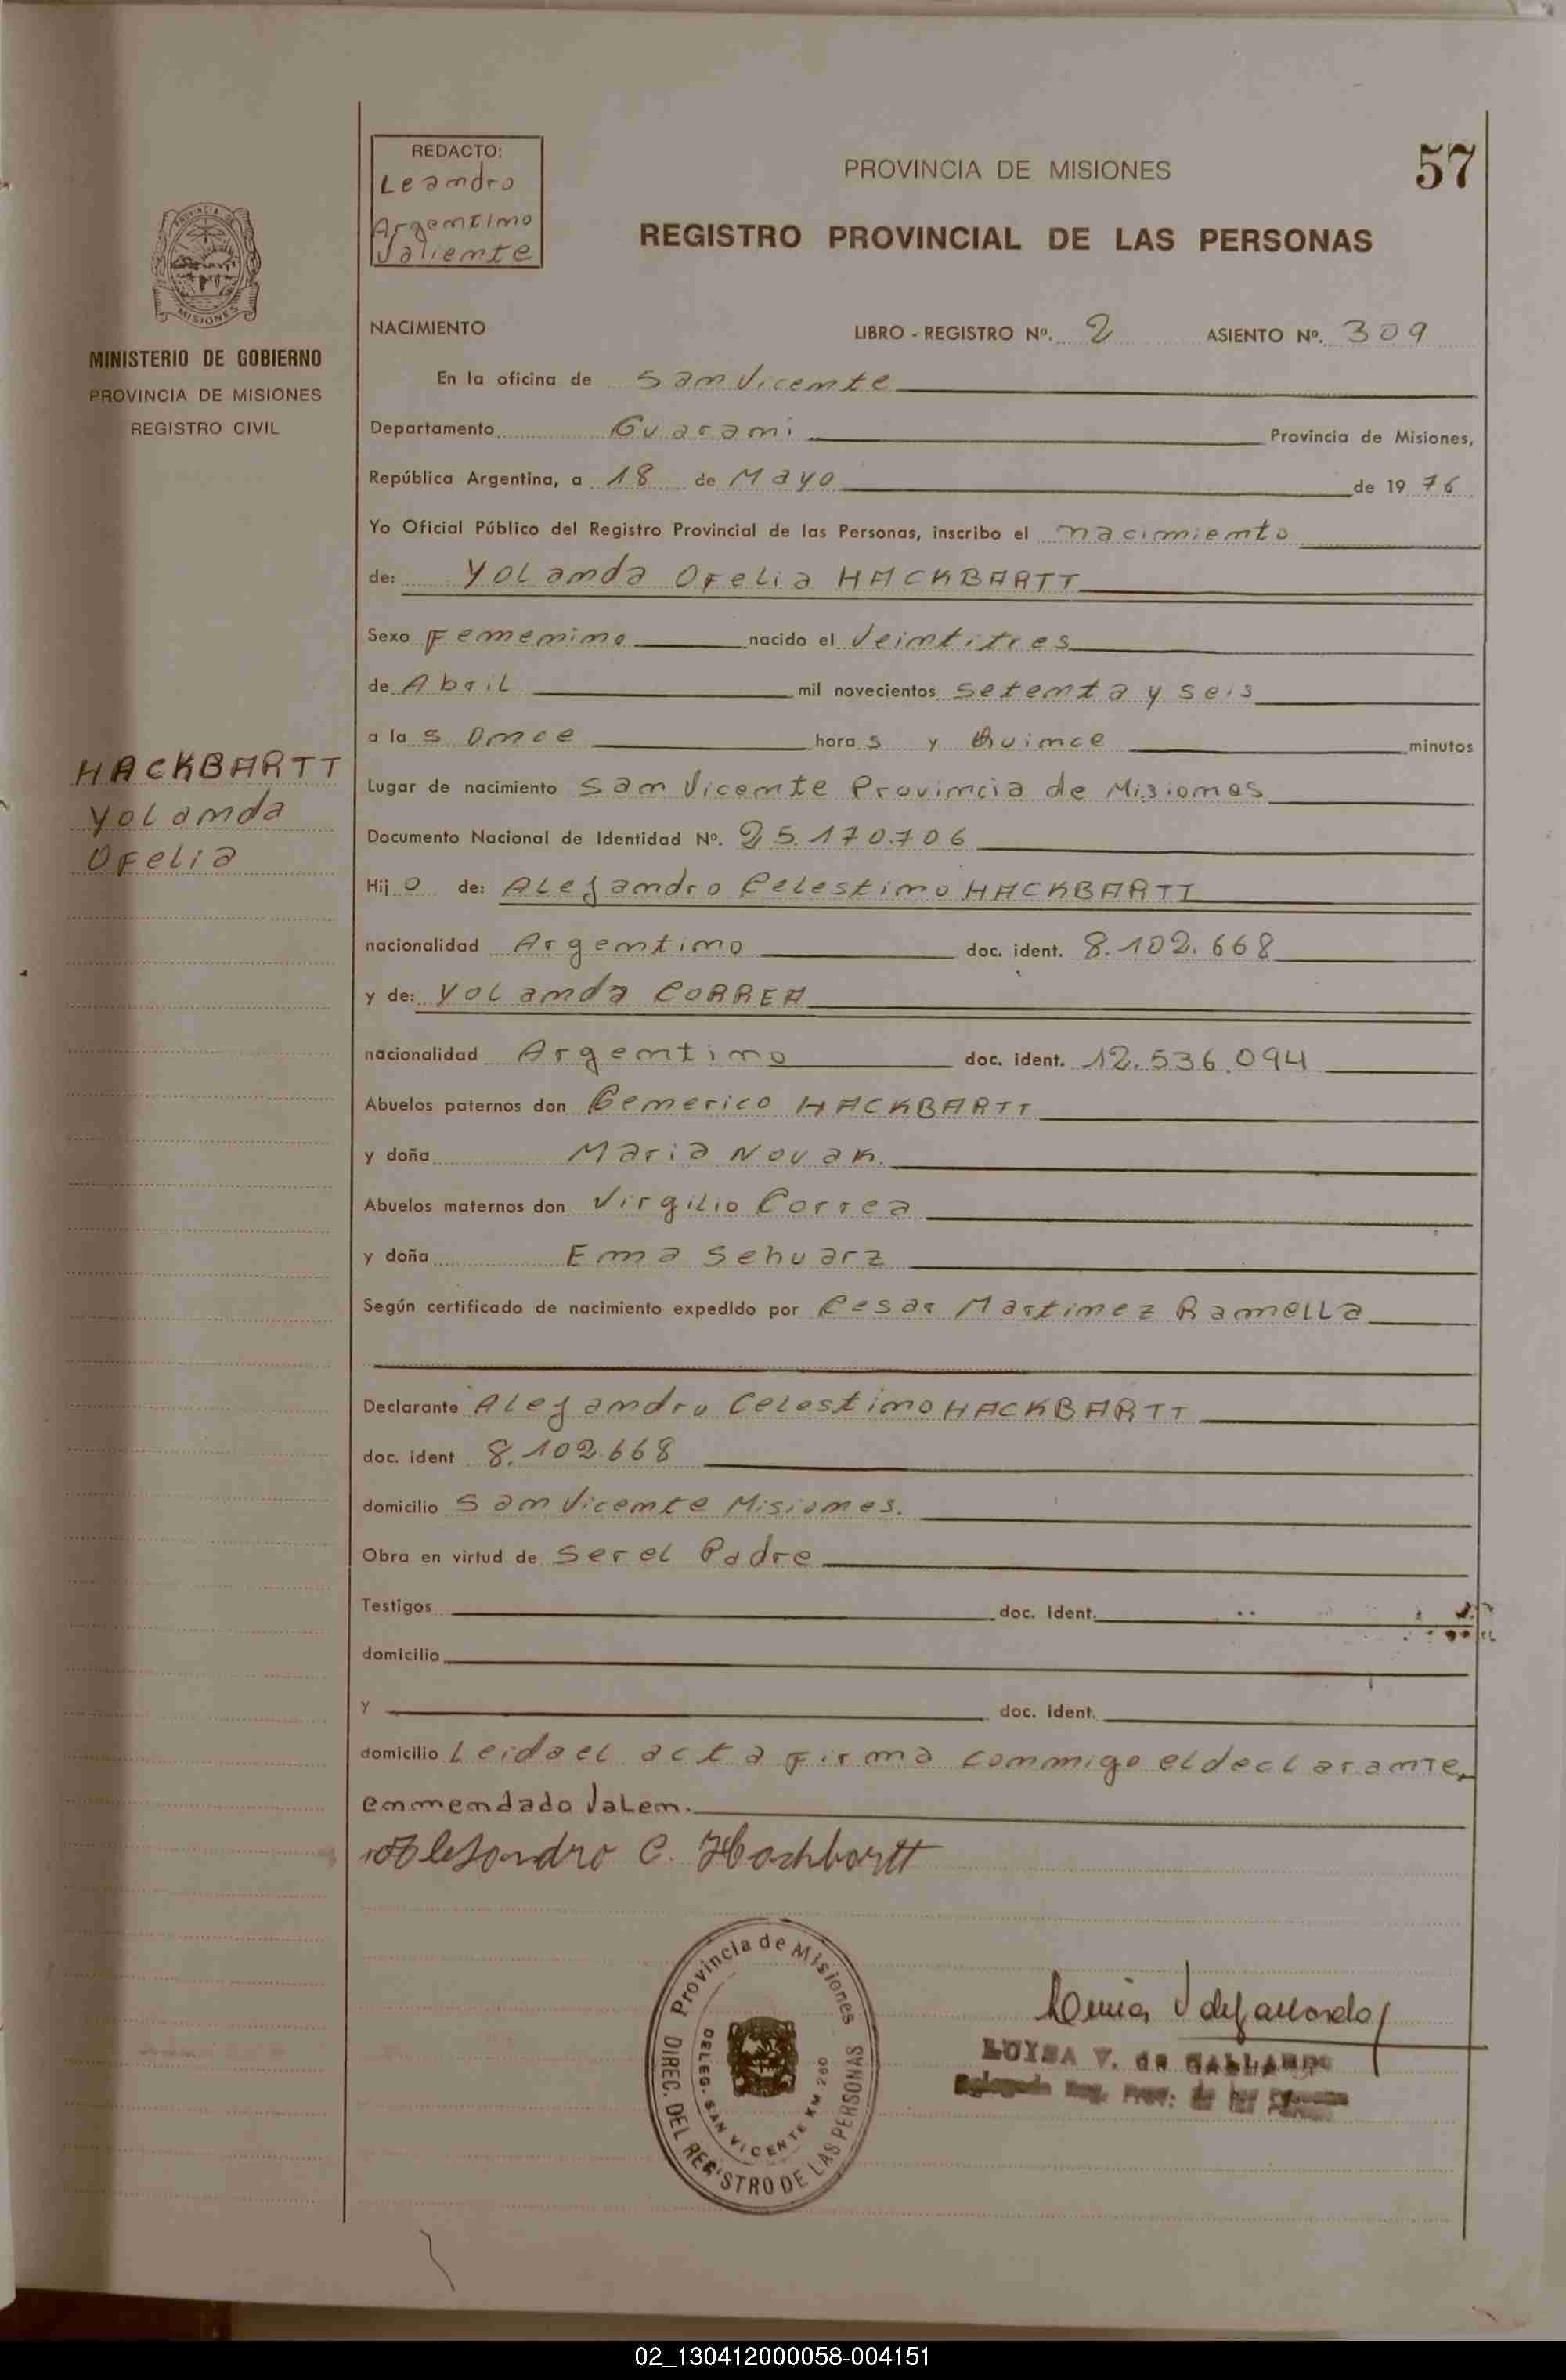 REDACTO:
Leandro
Argentino
Valiente
PROVINCIA DE MISIONES
57
REGISTRO PROVINCIAL DE LAS PERSONAS
PROVINCIA DE
MISIONES
MINISTERIO DE GOBIERNO
PROVINCIA DE MISIONES
REGISTRO CIVIL
NACIMIENTO LIBRO - REGISTRO Nº. 2 ASIENTO Nº. 309
En la oficina de San Vicente
Departamento Guarani Provincia de Misiones,
República Argentina, a 18 de Mayo de 1976
Yo Oficial Público del Registro Provincial de las Personas, inscribo el nacimiento
de: Yolanda Ofelia HACKBARTT
Sexo Femenino nacido el Veintitres
de Abril mil novecientos setenta y seis
a las Once horas y Quince minutos
HACKBARTT
Yolanda
Ofelia
Lugar de nacimiento San Vicente Provincia de Misiones
Documento Nacional de Identidad Nº. 25.170.706
Hijo de: Alejandro Celestino HACKBARTT
nacionalidad Argentino doc. ident. 8.102.668
y de: Yolanda CORREA
nacionalidad Argentino doc. ident. 12.536.094
Abuelos paternos don Generico HACKBARTT
y doña Maria Novak.
Abuelos maternos don Virgilio Correa
y doña Ema Sehuarz
Según certificado de nacimiento expedido por Cesar Martinez Ramella
Declarante Alejandro Celestino HACKBARTT
doc. ident 8.102.668
domicilio San Vicente Misiones.
Obra en virtud de ser el Padre
Testigos doc. ident.
domicilio
y doc. ident.
domicilio Leida el acta firma conmigo el declarante,
enmendado Valen.
Alejandro C. Hackbartt
Provincia de Misiones
DIREC. DEL REGISTRO DE LAS PERSONAS
DELEG. SAN VICENTE KM. 260
LUISA V. de GALLARDO
Delegada Reg. Prov. de las Personas
02_130412000058-004151